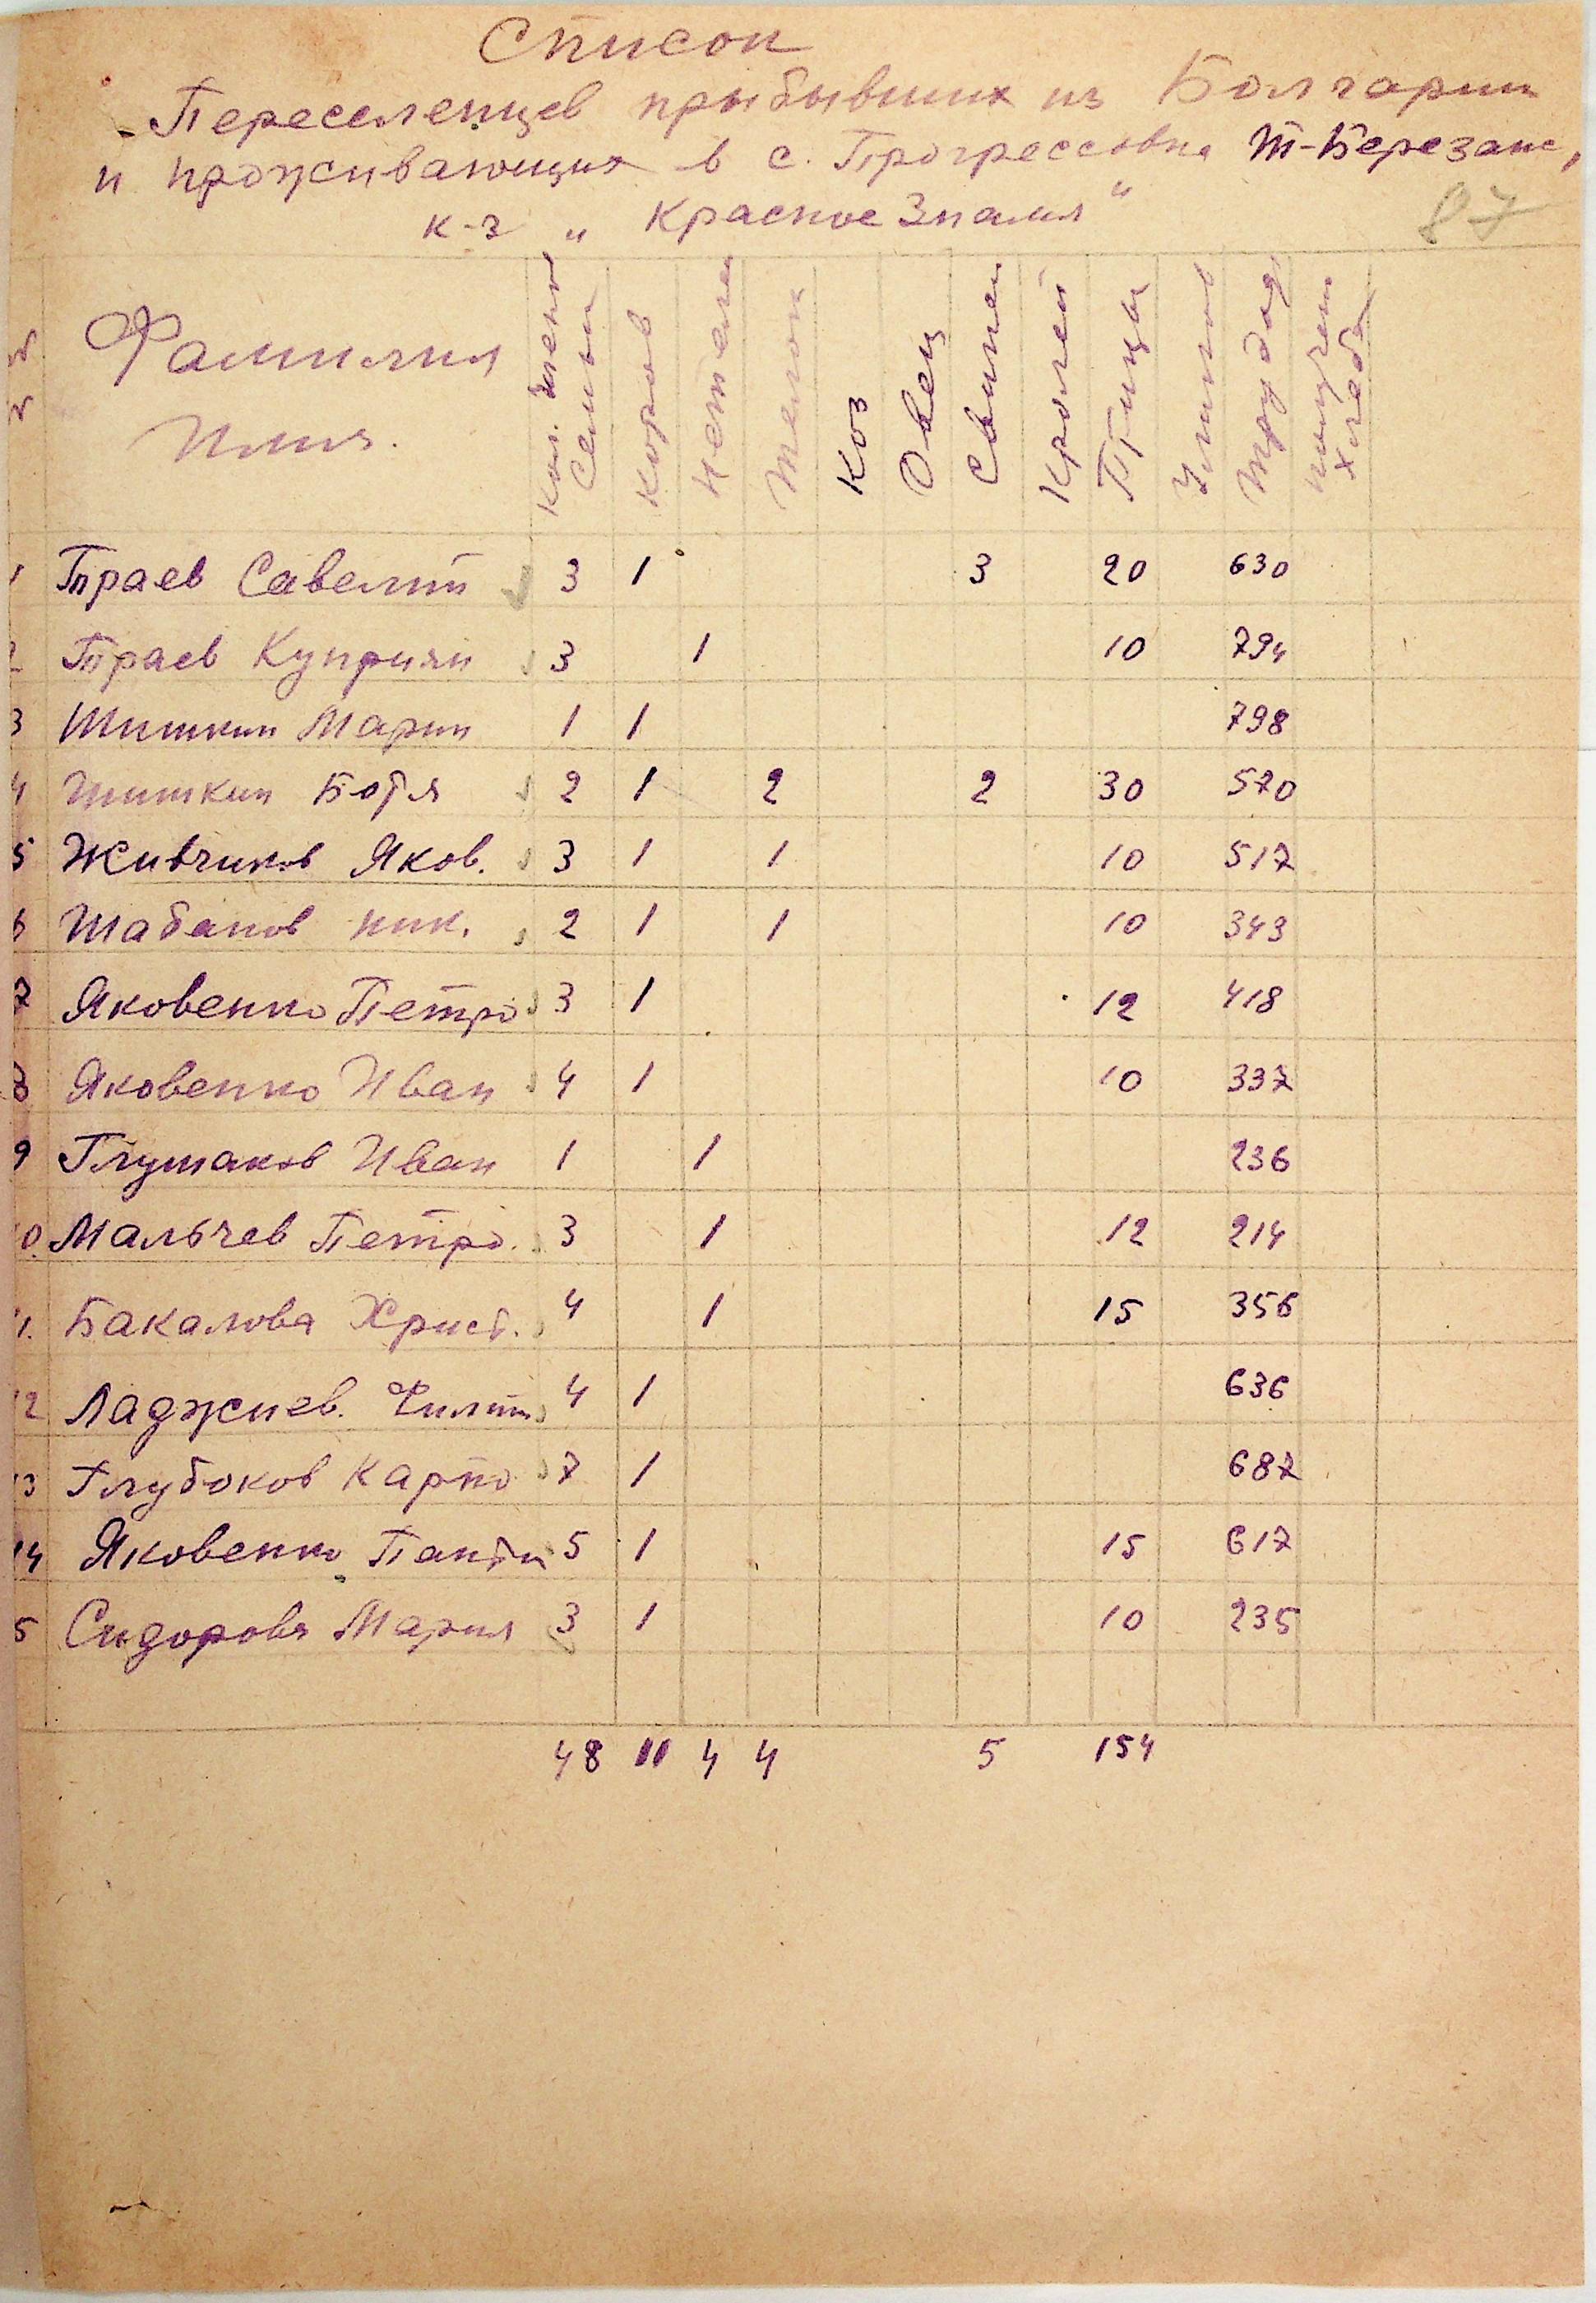 Список
Переселенцев прыбывших из Болгарии
и проживающих в с. Прогрессовка Т-Березанс,
к-з „ Красное Знамя "
87
№ № Фамилия Имя. Кол. членов Семьи Коров Нетелей Телок Коз Овец Свиней Кролей Птицы Ульев Трудод получен хлеба
1 Праев Савелий 3 1 3 20 630
2 Праев Куприян 3 1 10 794
3 Шишкин Марин 1 1 798
4 ШишкинБотя 2 1 2 2 30 570
5 Живчиков Яков. 3 1 1 10 517
6 Шабанов ник. 2 1 1 10 343
7 Яковенко Петро 3 1 12 418
8 Яковенко Иван 4 1 10 337
9 Глушаков Иван 1 1 236
10. Мальчев Петро. 3 1 12 214
11. Бакалова Христ. 4 1 15 356
12 Ладжиев. 4 1 636
13 Глубоков Карпо 7 1 687
14 Яковенко Панти 5 1 15 617
15 Сидорова Мария 3 1 10 235
48 11 4 4 5 154